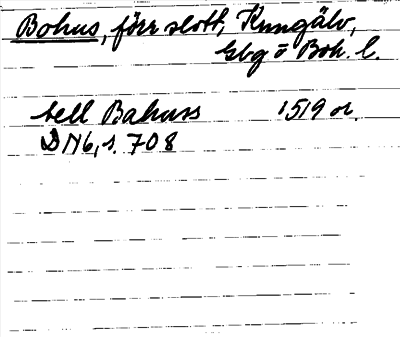 Bohus, förr slott, Kungälv,
Gbg o Boh. l.
tell Bahuss 1519 or.
DN6, s. 708